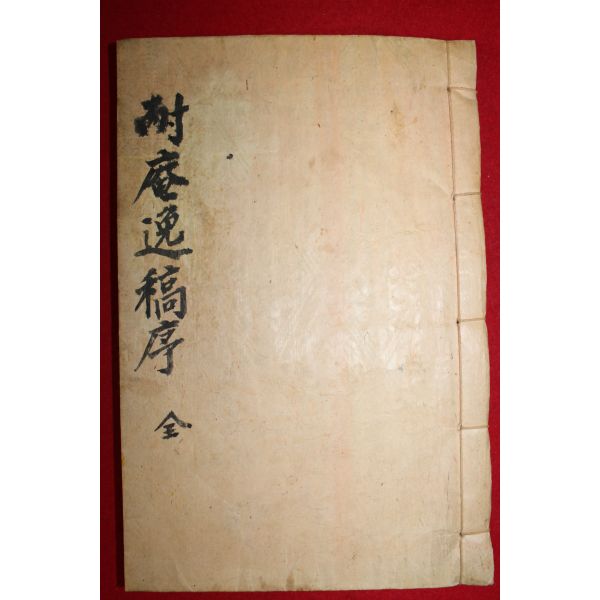 耐庵逸稿序
全